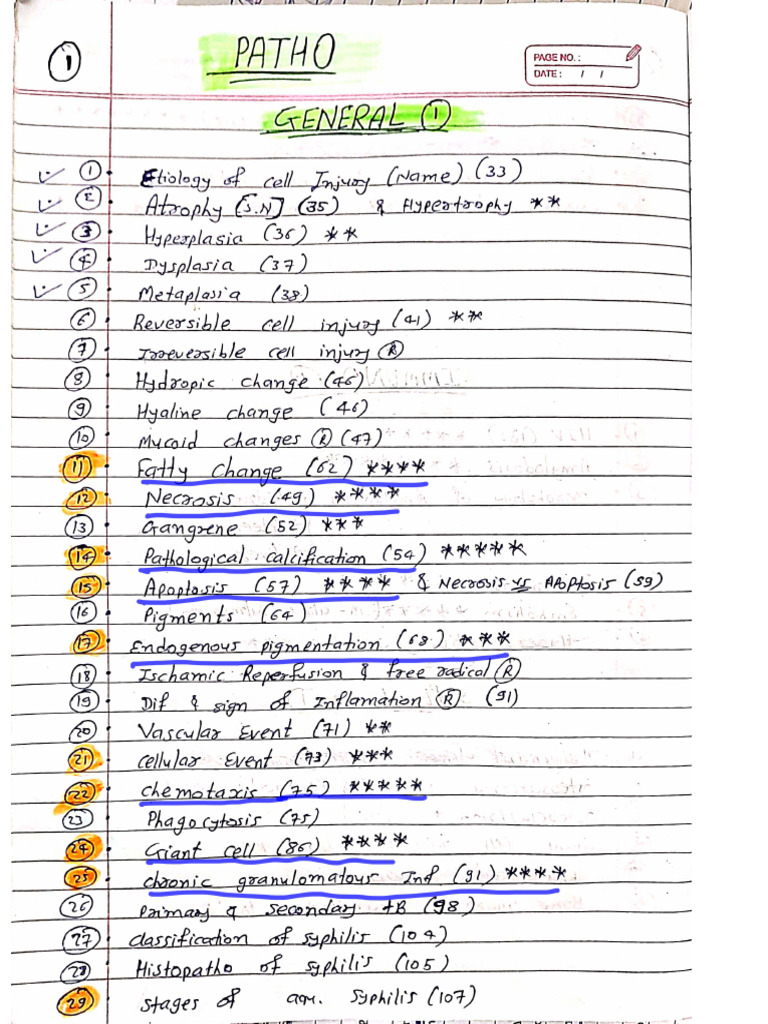 1
PATHO
PAGE NO. :
DATE : / /
GENERAL 1
1 Etiology of cell Injury (Name) (33)
2 Atrophy [S.N] (35) & Hypertrophy **
3 Hyperplasia (36) **
4 Dysplasia (37)
5 Metaplasia (38)
6 Reversible cell injury (41) **
7 Irreversible cell injury R
8 Hydropic change (46)
9 Hyaline change (46)
10 Mucoid changes R (47)
11 Fatty Change (62) ****
12 Necrosis (49) ****
13 Gangrene (52) ***
14 Pathological calcification (54) *****
15 Apoptosis (57) **** & Necrosis vs Apoptosis (59)
16 Pigments (64)
17 Endogenous pigmentation (68) ***
18 Ischamic Reperfusion & free radical R
19 Dif & sign of Inflamation R (91)
20 Vascular Event (71) **
21 cellular Event (73) ***
22 chemotaxis (75) *****
23 Phagocytosis (75)
24 Giant cell (86) ****
25 chronic granulomatous Inf (91) ****
26 Primary & secondary TB (98)
27 classification of syphilis (104)
28 Histopatho of syphilis (105)
29 stages of syphilis (107)